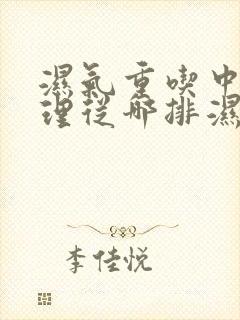 濕氣重喫中
理從哪排濕
李佳悅